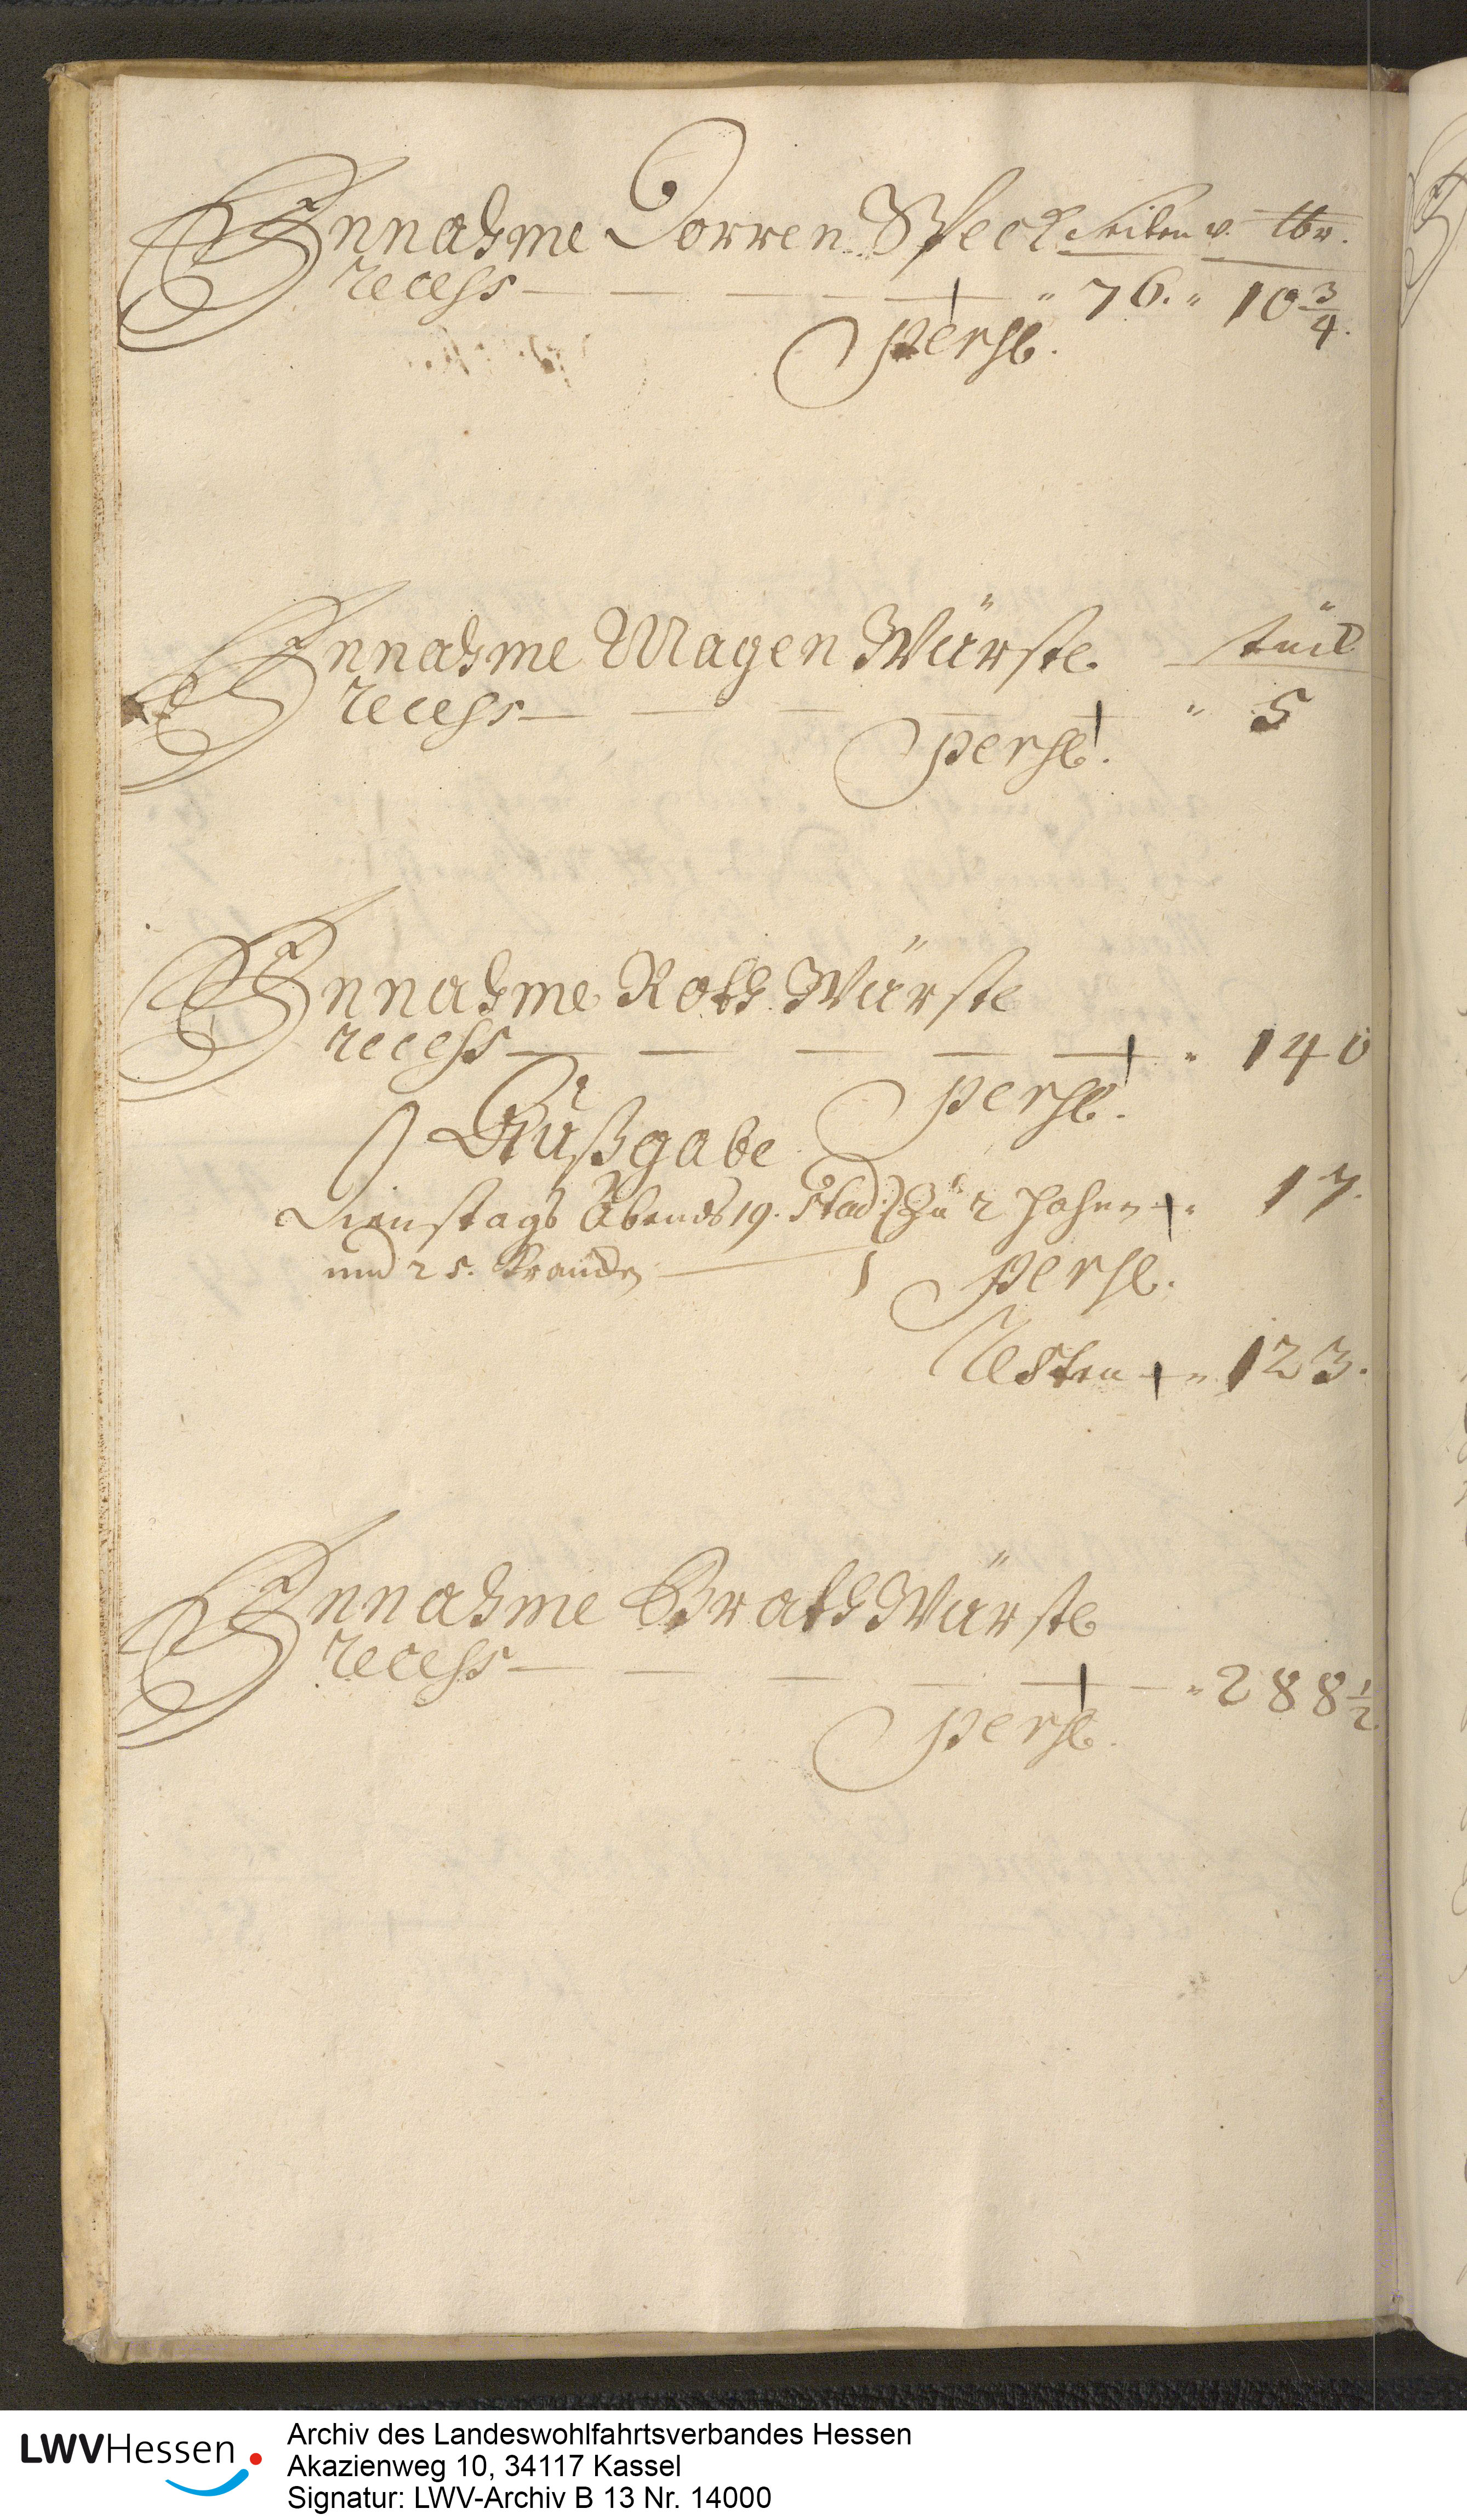 Innahme Dorren Speck Seiten v. lbr.
recess — — — — " 76. " 10 3/4.
per se.
Innahme Magen Würste. stück
recess — — — — " 5
per se.
Innahme Roth Würste
recess — — — — " 140
per se.
Außgabe
Dienstags Abends 19. Stad:) zu 2 Hohen " 17.
und 25. Krancken
per se.
Resten " 123.
Innahme Brath Würste
recess — — — — " 288 1/2
per se.
LWVHessen
Archiv des Landeswohlfahrtsverbandes Hessen
Akazienweg 10, 34117 Kassel
Signatur: LWV-Archiv B 13 Nr. 14000